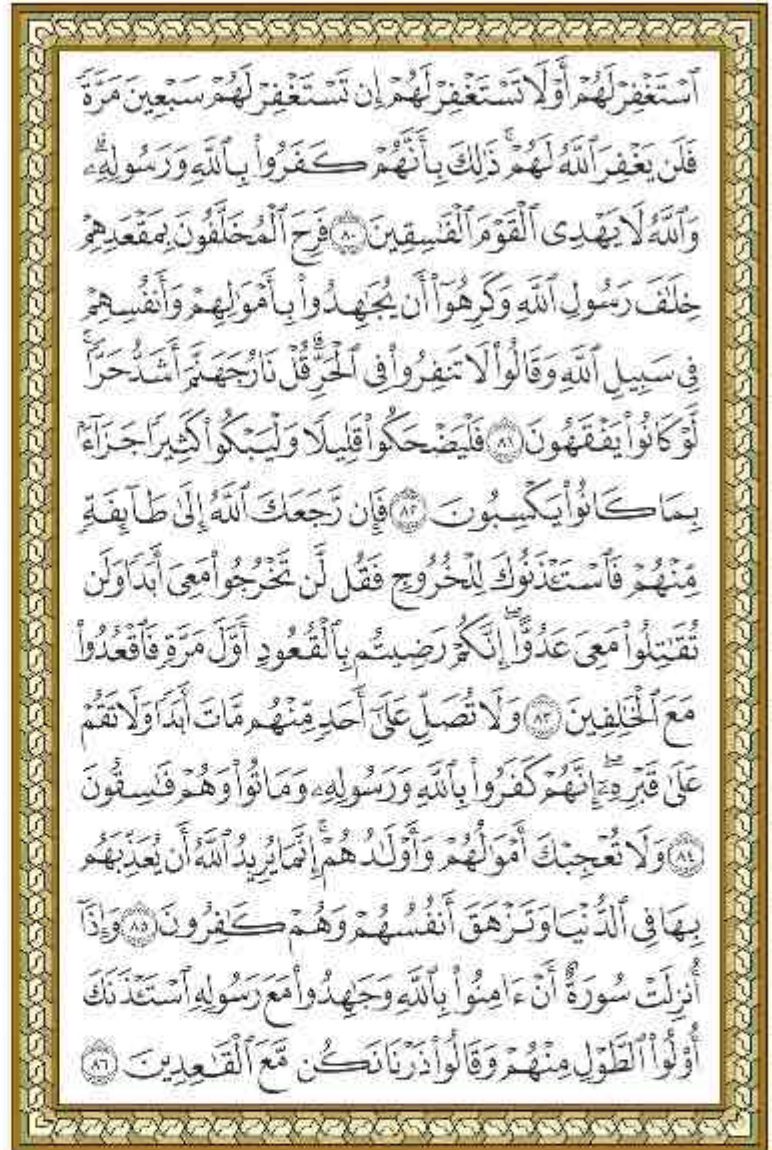 ٱسۡتَغۡفِرۡ لَهُمۡ أَوۡ لَا تَسۡتَغۡفِرۡ لَهُمۡ إِن تَسۡتَغۡفِرۡ لَهُمۡ سَبۡعِينَ مَرَّةٗ
فَلَن يَغۡفِرَ ٱللَّهُ لَهُمۡۚ ذَٰلِكَ بِأَنَّهُمۡ كَفَرُواْ بِٱللَّهِ وَرَسُولِهِۦۗ
وَٱللَّهُ لَا يَهۡدِى ٱلۡقَوۡمَ ٱلۡفَٰسِقِينَ ٨٠ فَرِحَ ٱلۡمُخَلَّفُونَ بِمَقۡعَدِهِمۡ
خِلَٰفَ رَسُولِ ٱللَّهِ وَكَرِهُوٓاْ أَن يُجَٰهِدُواْ بِأَمۡوَٰلِهِمۡ وَأَنفُسِهِمۡ
فِى سَبِيلِ ٱللَّهِ وَقَالُواْ لَا تَنفِرُواْ فِى ٱلۡحَرِّۗ قُلۡ نَارُ جَهَنَّمَ أَشَدُّ حَرّٗاۚ
لَّوۡ كَانُواْ يَفۡقَهُونَ ٨١ فَلۡيَضۡحَكُواْ قَلِيلٗا وَلۡيَبۡكُواْ كَثِيرٗا جَزَآءَۢ
بِمَا كَانُواْ يَكۡسِبُونَ ٨٢ فَإِن رَّجَعَكَ ٱللَّهُ إِلَىٰ طَآئِفَةٖ
مِّنۡهُمۡ فَٱسۡتَـٔۡذَنُوكَ لِلۡخُرُوجِ فَقُل لَّن تَخۡرُجُواْ مَعِىَ أَبَدٗا وَلَن
تُقَٰتِلُواْ مَعِىَ عَدُوًّاۖ إِنَّكُمۡ رَضِيتُم بِٱلۡقُعُودِ أَوَّلَ مَرَّةٖ فَٱقۡعُدُواْ
مَعَ ٱلۡخَٰلِفِينَ ٨٣ وَلَا تُصَلِّ عَلَىٰٓ أَحَدٖ مِّنۡهُم مَّاتَ أَبَدٗا وَلَا تَقُمۡ
عَلَىٰ قَبۡرِهِۦٓۖ إِنَّهُمۡ كَفَرُواْ بِٱللَّهِ وَرَسُولِهِۦ وَمَاتُواْ وَهُمۡ فَٰسِقُونَ
٨٤ وَلَا تُعۡجِبۡكَ أَمۡوَٰلُهُمۡ وَأَوۡلَٰدُهُمۡۚ إِنَّمَا يُرِيدُ ٱللَّهُ أَن يُعَذِّبَهُم
بِهَا فِى ٱلدُّنۡيَا وَتَزۡهَقَ أَنفُسُهُمۡ وَهُمۡ كَٰفِرُونَ ٨٥ وَإِذَآ
أُنزِلَتۡ سُورَةٌ أَنۡ ءَامِنُواْ بِٱللَّهِ وَجَٰهِدُواْ مَعَ رَسُولِهِ ٱسۡتَـٔۡذَنَكَ
أُوْلُواْ ٱلطَّوۡلِ مِنۡهُمۡ وَقَالُواْ ذَرۡنَا نَكُن مَّعَ ٱلۡقَٰعِدِينَ ٨٦